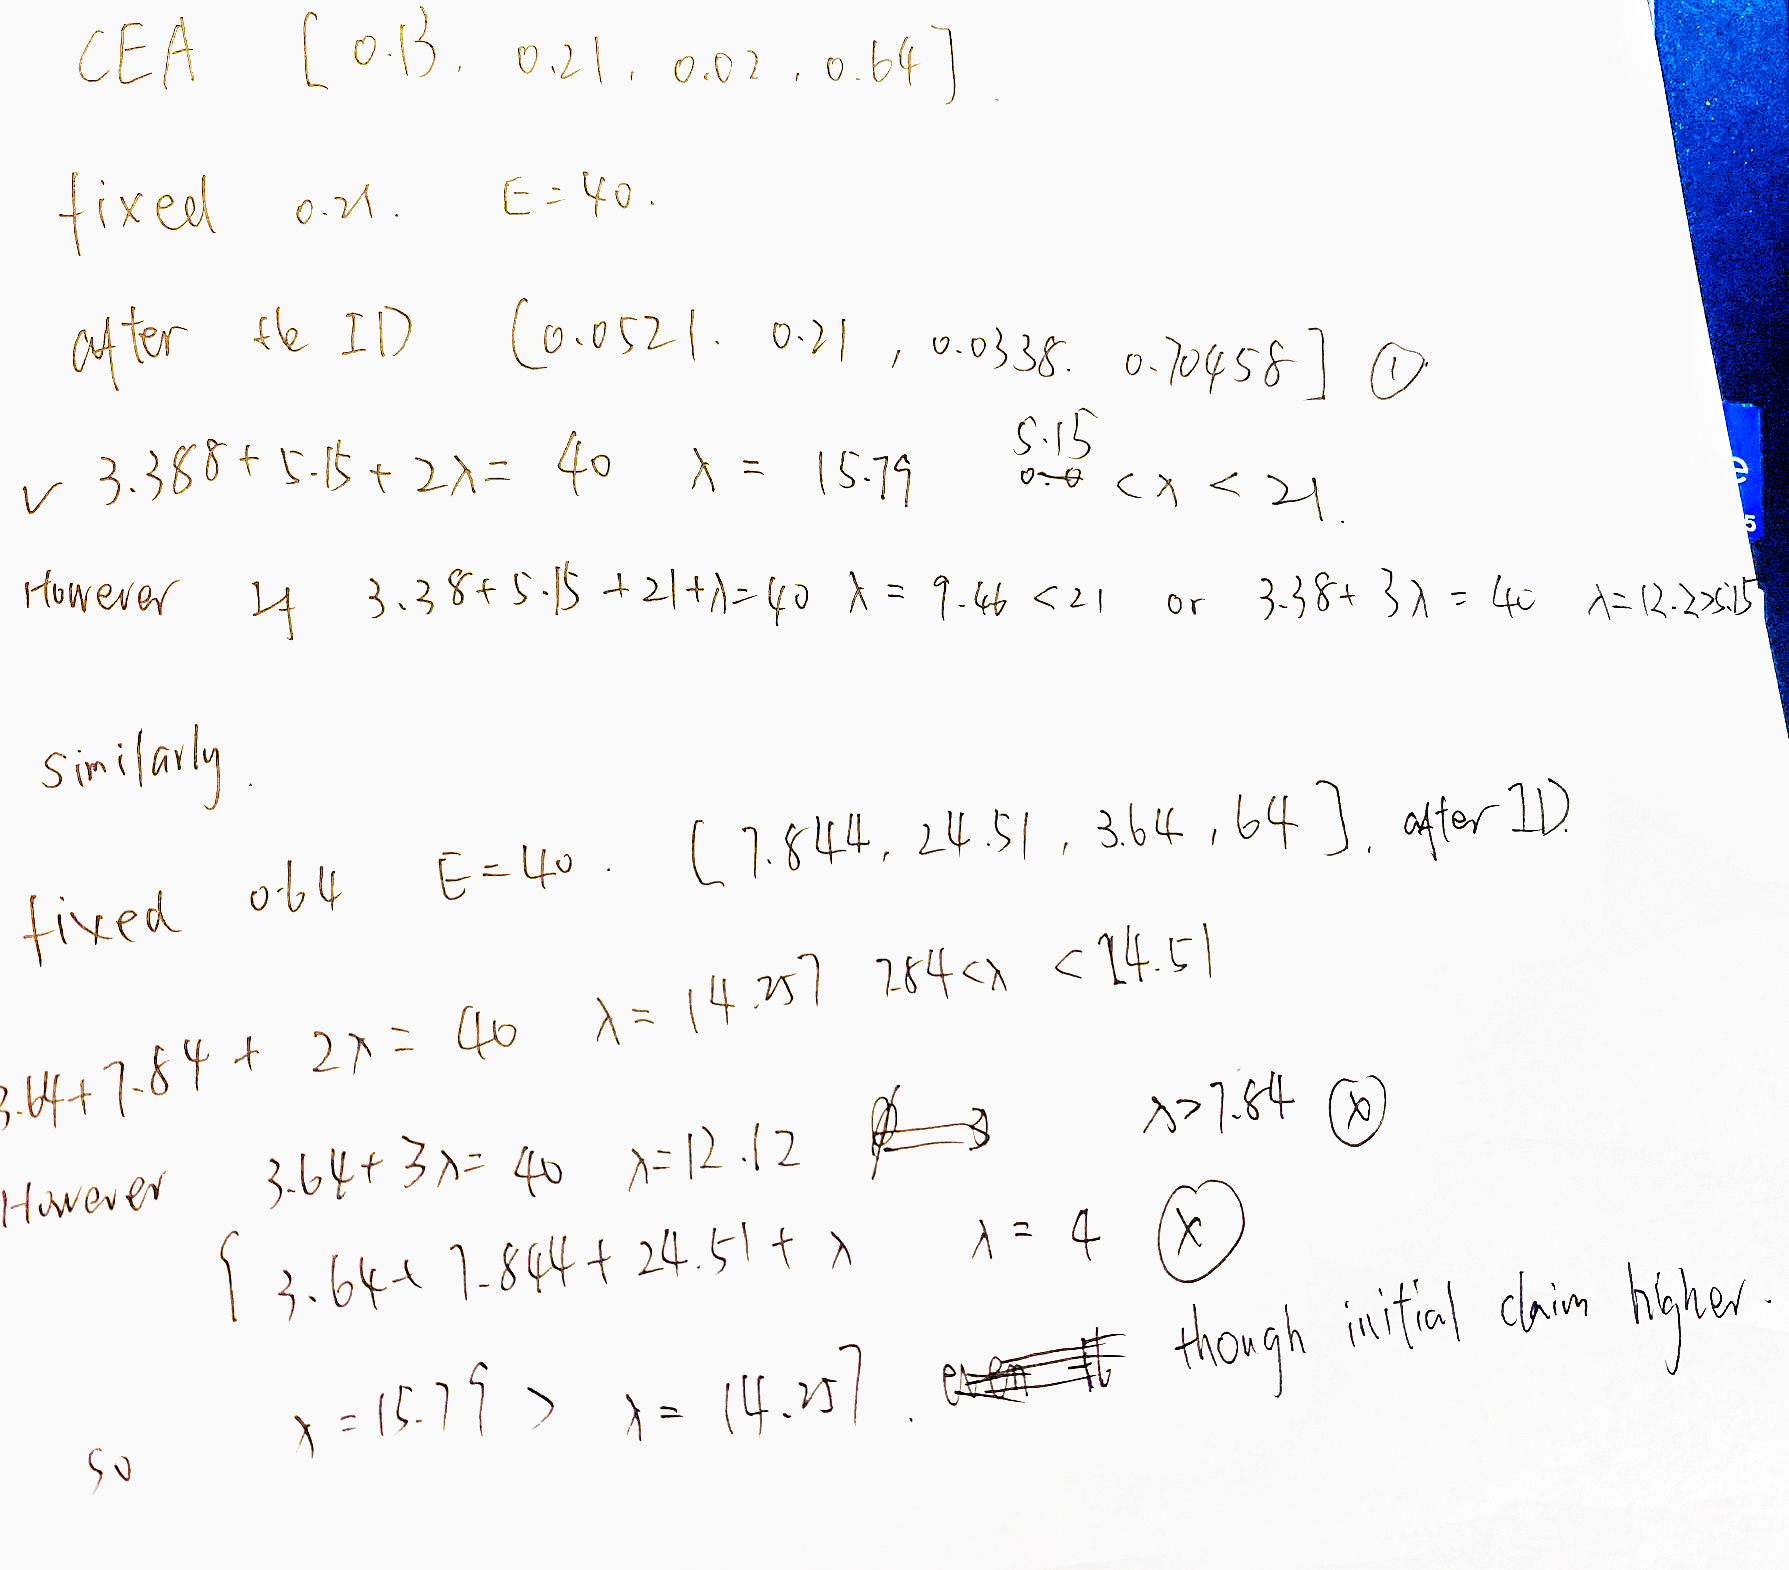 CEA [0.13, 0.21, 0.02, 0.64]
fixed 0.21. E=40.
after the ID (0.0521. 0.21, 0.0338. 0.70458] ①
5.15
✓ 3.388+5.15+2λ= 40 λ = 15.79 <λ < 21.
However If 3.38+5.15+21+λ=40 λ = 9.46 <21 or 3.38+3λ = 40 λ=12.2>5.15
similarly.
fixed 0.64 E=40. [7.844, 24.51, 3.64, 64], after ID.
3.64+7.84+ 2λ= 40 λ= 14.257 7.84<λ <24.51
However 3.64+3λ= 40 λ=12.12 λ>7.84 ⓧ
{ 3.64+ 7.844+24.51+ λ λ = 4 ⓧ
so λ=15.79 > λ= 14.257. though initial claim higher.
e
5